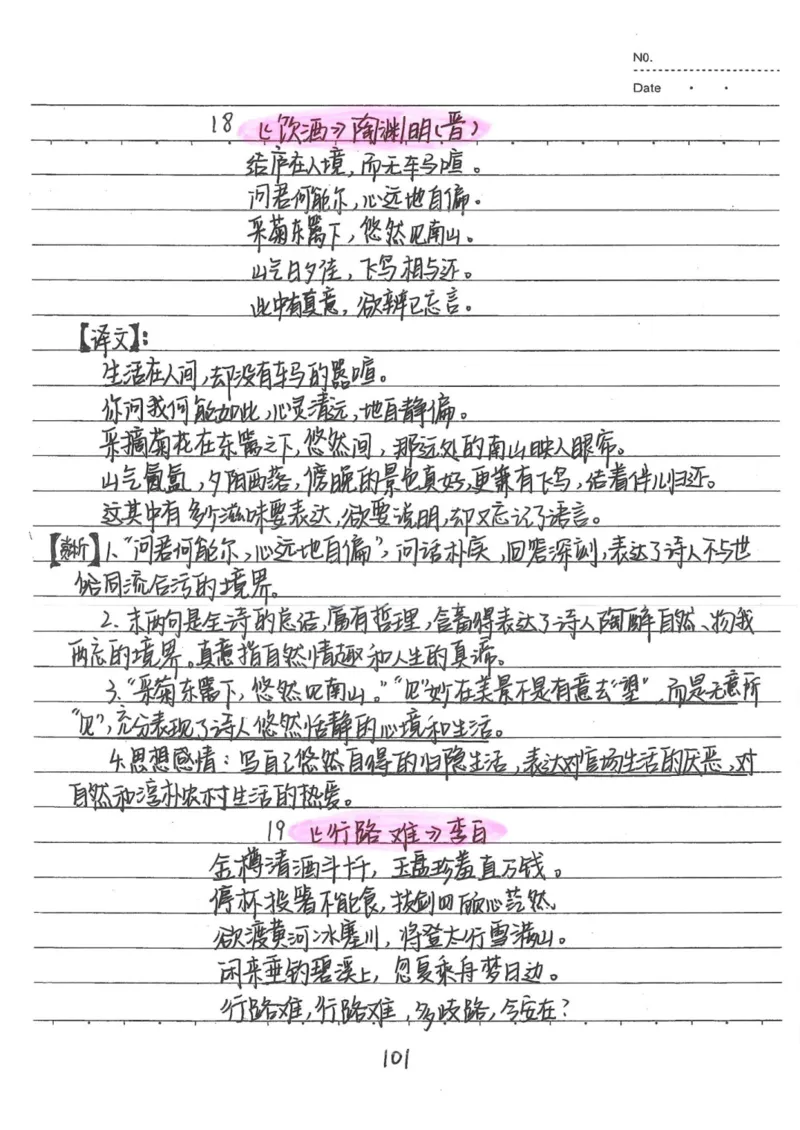 NO.
Date
18 《饮酒》陶渊明(晋)
结庐在人境,而无车马喧。
问君何能尔,心远地自偏。
采菊东篱下,悠然见南山。
山气日夕佳,飞鸟相与还。
此中有真意,欲辨已忘言。
【译文】:
生活在人间,却没有车马的嚣喧。
你问我何能如此,心灵清远,地自静偏。
采摘菊花在东篱之下,悠然间,那远处的南山映入眼帘。
山气氤氲,夕阳西落,傍晚的景色真好,更兼有飞鸟,结着伴儿归还。
这其中有多少滋味要表达,欲要说明,却又忘记了语言。
【赏析】1、“问君何能尔,心远地自偏”,问话朴实,回答深刻,表达了诗人不与世
俗同流合污的境界。
2、末两句是全诗的总结,富有哲理,含蓄得表达了诗人陶醉自然、物我
两忘的境界。真意指自然情趣和人生的真谛。
3、“采菊东篱下,悠然见南山。”“见”妙在美景不是有意去“望”,而是无意所
“见”,充分表现了诗人悠然恬静的心境和生活。
4、思想感情:写自己悠然自得的归隐生活,表达对官场生活的厌恶,对
自然和淳朴农村生活的热爱。
19 《行路难》李白
金樽清酒斗十千,玉盘珍羞直万钱。
停杯投箸不能食,拔剑四顾心茫然。
欲渡黄河冰塞川,将登太行雪满山。
闲来垂钓碧溪上,忽复乘舟梦日边。
行路难,行路难,多歧路,今安在?
101